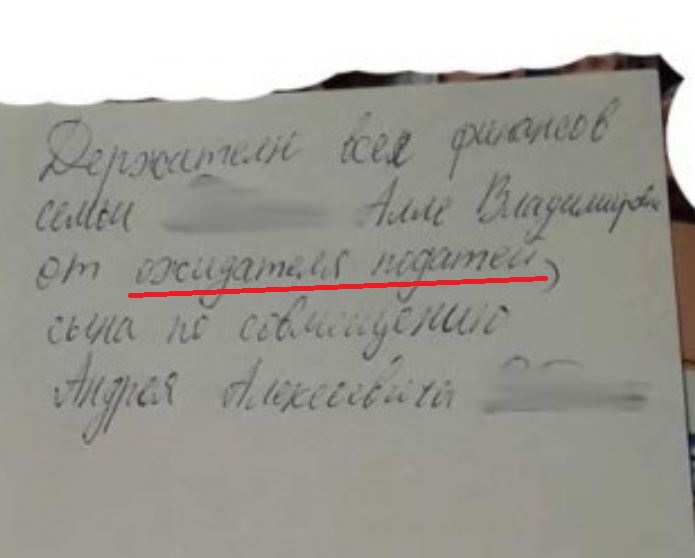 Держателю всех финансов
семьи Алле Владимировне
от ожидателя податей,
сына по совмещению
Андрея Алексеевича